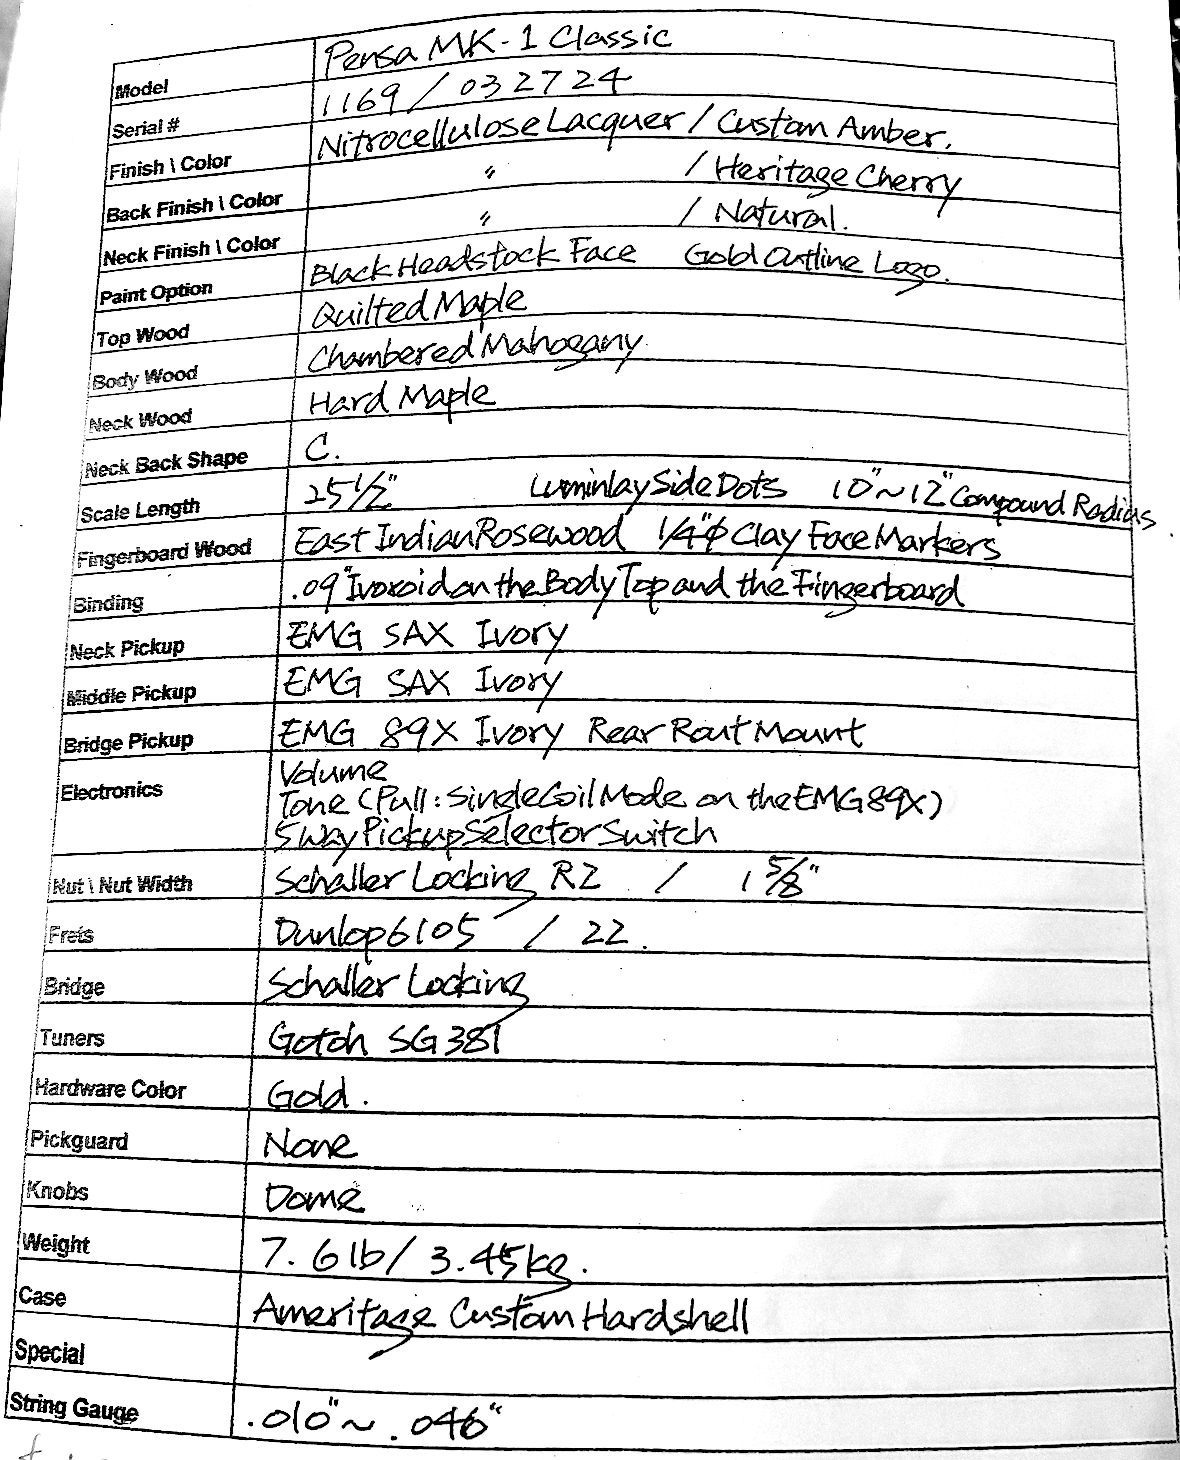 Model Pensa MK-1 Classic
Serial # 1169 / 032724
Finish \ Color Nitrocellulose Lacquer / Custom Amber.
Back Finish \ Color " / Heritage Cherry
Neck Finish \ Color " / Natural.
Paint Option Black Headstock Face Gold Outline Logo.
Top Wood Quilted Maple
Body Wood Chambered Mahogany
Neck Wood Hard Maple
Neck Back Shape C.
Scale Length 25 1/2" Luminlay Side Dots 10"~12" Compound Radius
Fingerboard Wood East Indian Rosewood 1/4"φ Clay Face Markers
Binding .09" Ivoroid on the Body Top and the Fingerboard
Neck Pickup EMG SAX Ivory
Middle Pickup EMG SAX Ivory
Bridge Pickup EMG 89X Ivory Rear Rout Mount
Electronics Volume
Tone (Pull: Single Coil Mode on the EMG 89X)
5 Way Pickup Selector Switch
Nut \ Nut Width Schaller Locking R2 / 1 5/8"
Frets Dunlop 6105 / 22.
Bridge Schaller Locking
Tuners Gotoh SG381
Hardware Color Gold.
Pickguard None
Knobs Dome
Weight 7.6 lb / 3.45 kg.
Case Ameritage Custom Hardshell
Special
String Gauge .010"~ .046"